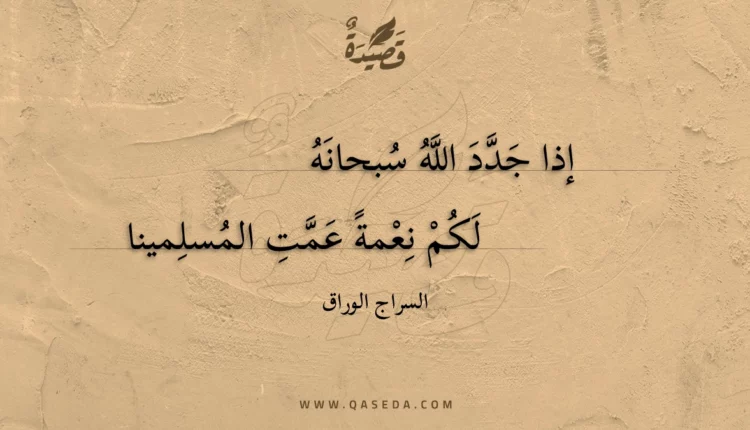 قَصِيدَةٌ
إذا جَدَّدَ اللَّهُ سُبحانَهُ
لَكُمْ نِعْمةً عَمَّتِ المُسلِمينا
السراج الوراق
WWW.QASEDA.COM